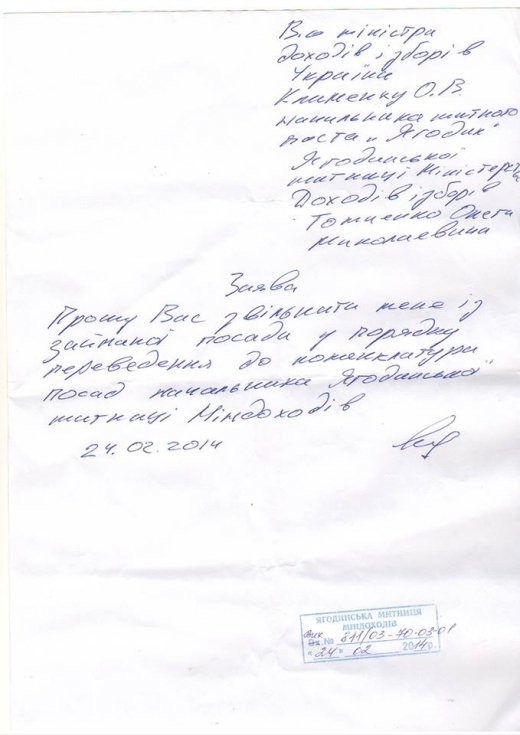 В.о міністра
доходів і зборів
України
Клименку О.В
начальника митного
поста „Ягодин"
Ягодинської
митниці Міністерст
Доходів і зборів
Миколаєвича
Заява
Прошу Вас звільнити мене із
займаної посади у порядку
переведення до номенклатури
посад начальника Ягодинської
митниці Міндоходів
24.02.2014
ЯГОДИНСЬКА МИТНИЦЯ
МІНДОХОДІВ
Вх. № 811/03-70-03-01
"24" 02 2014р.